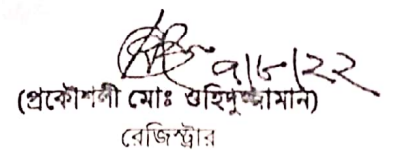 ৭/৮/২২
(প্রকৌশলী মোঃ ওহিদুজ্জামান)
রেজিস্ট্রার